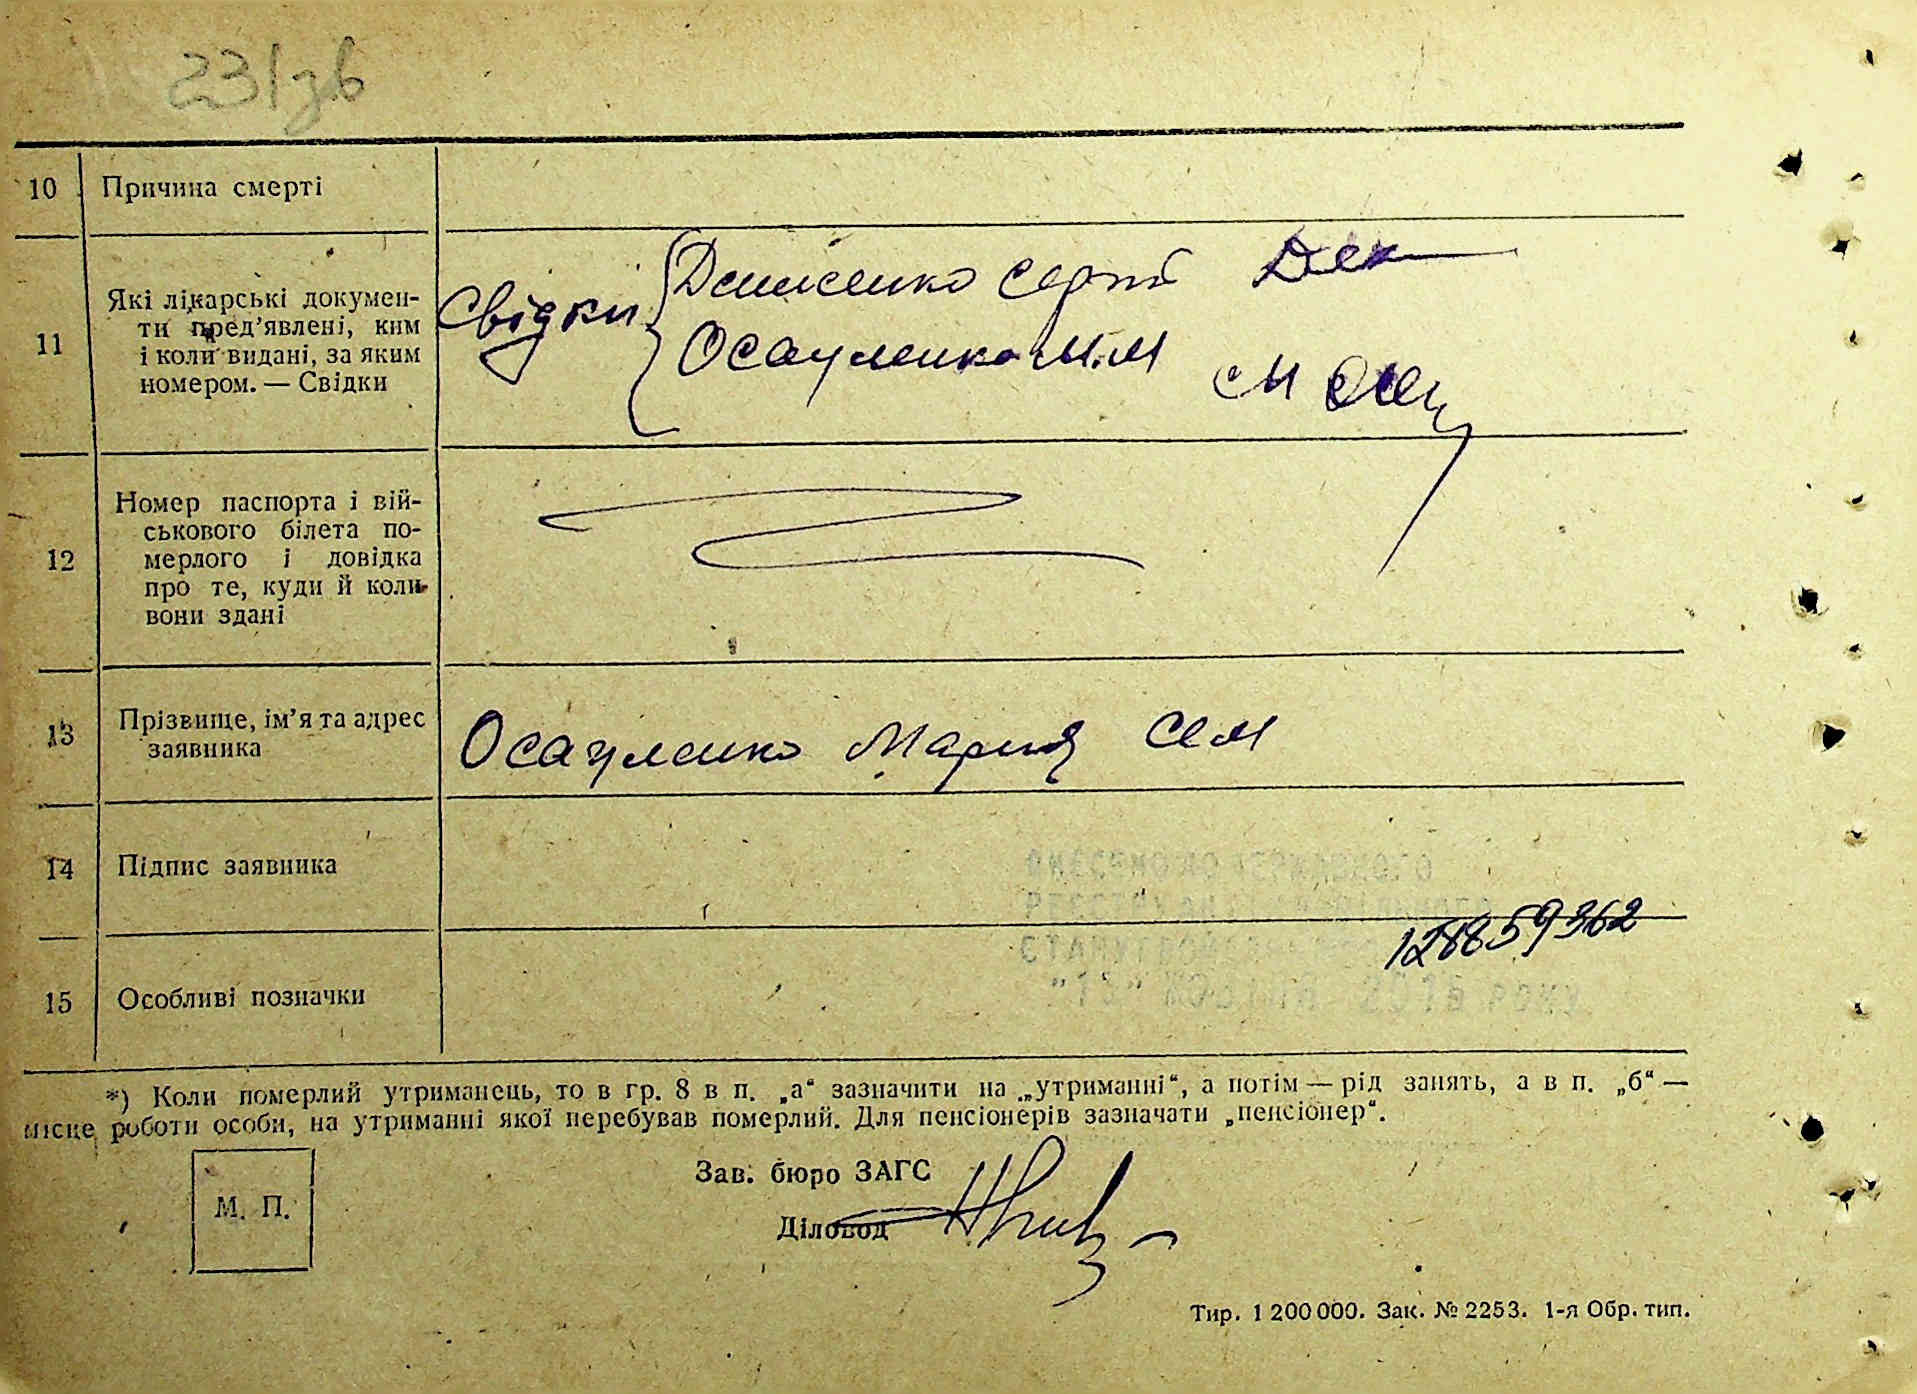 231зв
10 Причина смерті
11 Які лікарські докумен-
ти пред’явлені, ким
і коли видані, за яким
номером. — Свідки
Свідки
Денисенко Сергій Ден
Осауленко М.М
12 Номер паспорта і вій-
ськового білета по-
мерлого і довідка
про те, куди й коли
вони здані
13 Прізвище, ім’я та адрес
заявника
Осауленко Мария Сем
14 Підпис заявника
ВНЕСЕНО ДО ДЕРЖАВНОГО
РЕЄСТРУ
128859362
15 Особливі позначки
*) Коли померлий утриманець, то в гр. 8 в п. „а“ зазначити на „утриманні“, а потім — рід занять, а в п. „б“ —
місце роботи особи, на утриманні якої перебував померлий. Для пенсіонерів зазначати „пенсіонер“.
М. П.
Зав. бюро ЗАГС
Діловод
Тир. 1 200 000. Зак. № 2253. 1-я Обр. тип.